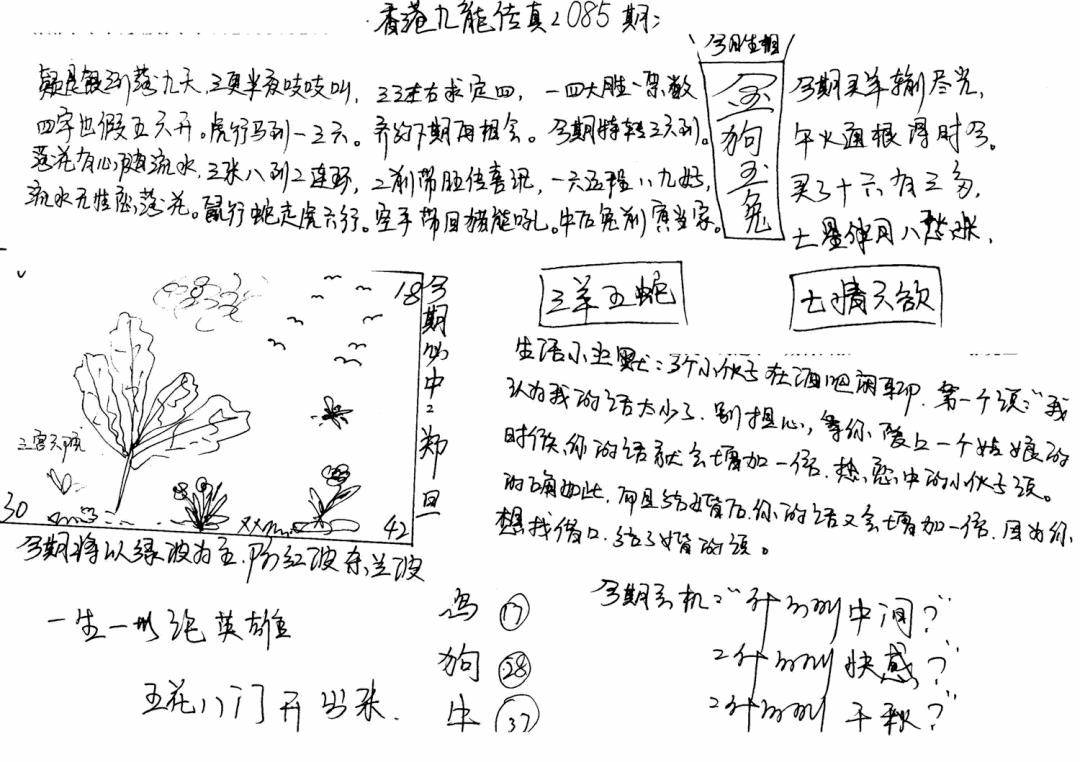 香港九龍传真2085期:
今期生相
金狗玉兔
落九天,三更半夜吱吱叫,三三左右求定四,一四大胜一架数
四字也假五六开。虎行马到一三六。齐约下期再相会。今期特转三六到。
落花有心随流水,三张八列2连环,二前带胆传喜讯,一六五程八九好,
流水无性恋落花。鼠行蛇走虎六行。空手带回猪能吼。中后兔前寅当家。
今期买羊输尽光,
午火通根得时令。
买了十六有三多,
七星伴月八
三羊五蛇
七情六欲
18
30
42
今期必中:郑旦
今期将以绿波为主.防红波杀兰波
生活小幽默:3个小伙子在酒吧闲聊.第一个说:"我
认为我的话太少了.别担心,等你爱上一个姑娘的
时候,你的话就会增加一倍.热恋中的小伙子说。
的确如此.而且结婚后.你的话又会增加一倍.因为你
想找借口.结了婚的说。
一生一世论英雄
五花八门开出来.
鸡 17
狗 28
牛 37
今期玄机:"什么叫中间?"
"什么叫快感?"
"什么叫千秋?"